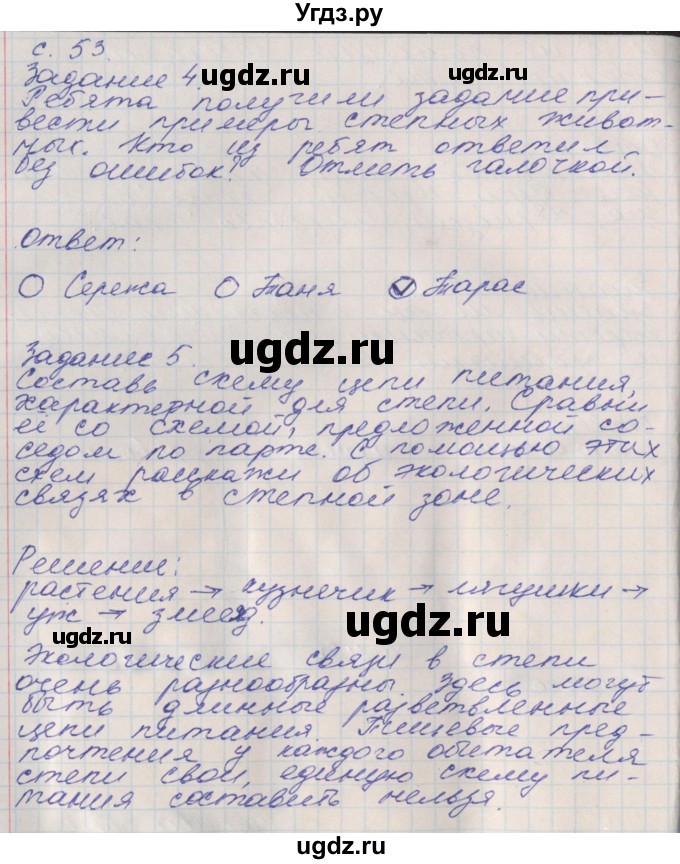 Угдз.ру
с. 53
ugdz.ru
Задание 4.
Ребята получили задание при-
вести примеры степных живот-
ных. Кто из ребят ответил
без ошибок? Отметь галочкой.
ugdz.ru
ugdz.ru
Ответ:
Сережа Таня Тарас
Задание 5.
ugdz.ru
Составь схему цепи питания,
характерной для степи. Сравни
ее со схемой, предложенной со-
седом по парте. С помощью этих
схем расскажи об экологических
связях в степной зоне.
ugdz.ru
Решение:
растения → кузнечик → лягушки →
уж → змеяд.
ugdz.ru
ugdz.ru
Экологические связи в степи
очень разнообразны. Здесь могут
быть длинные разветвленные
цепи питания. Пищевые пред-
почтения у каждого обитателя
степи свои, единую схему пи-
тания составить нельзя.
ugdz.ru
ugdz.ru